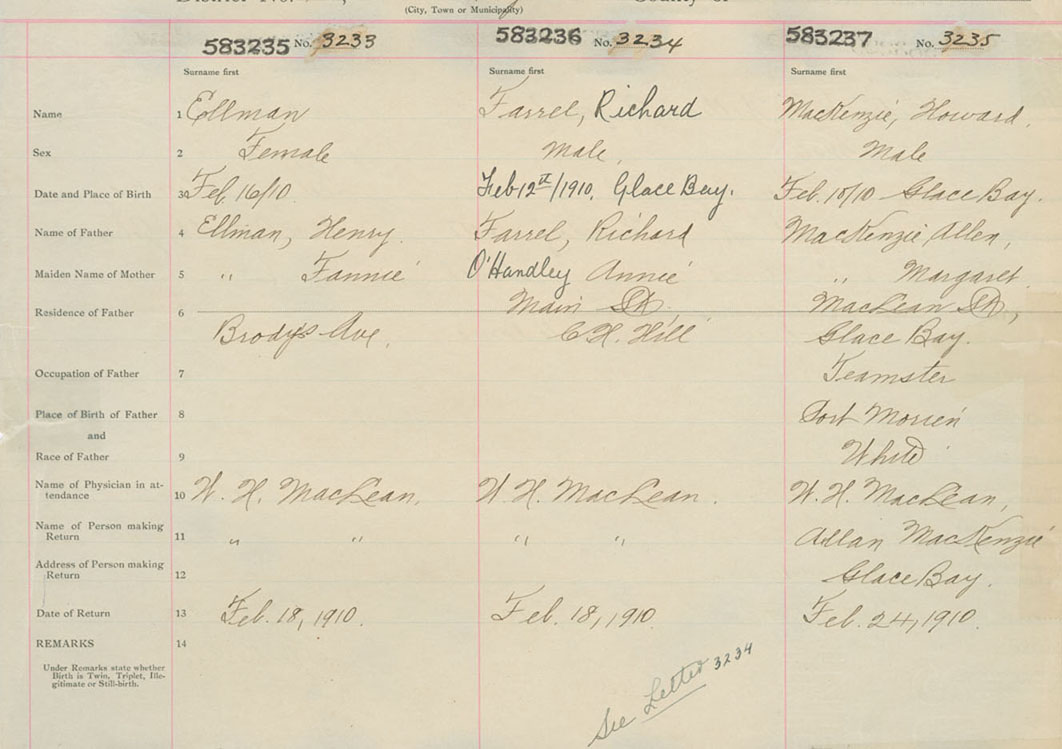 District No. County of
(City, Town or Municipality)
583235 No. 3233 583236 No. 3234 583237 No. 3235
Surname first Surname first Surname first
Name 1 Ellman Farrel, Richard MacKenzie, Howard.
Sex 2 Female Male. Male
Date and Place of Birth 3 Feb. 16/10 Feb 12th/1910. Glace Bay. Feb. 18/10 Glace Bay.
Name of Father 4 Ellman, Henry. Farrel, Richard MacKenzie Allen,
Maiden Name of Mother 5 " Fannie O'Handley Annie " Margaret.
Main St. MacLean St,
Residence of Father 6
Brodys Ave. C.H. Hill Glace Bay.
Occupation of Father 7 Teamster
Place of Birth of Father 8 Port Morien
and
Race of Father 9 White
Name of Physician in at-
tendance 10 W. H. MacLean. W. H. MacLean. W. H. MacLean,
Name of Person making
Return 11 " " " " Allan MacKenzie
Address of Person making
Return 12 Glace Bay.
Date of Return 13 Feb. 18, 1910. Feb. 18, 1910. Feb. 24, 1910.
REMARKS 14
Under Remarks state whether
Birth is Twin, Triplet, Ille-
gitimate or Still-birth.
See Letter 3234